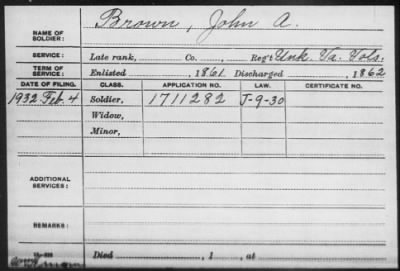 Brown, John A.
NAME OF SOLDIER:
SERVICE: Late rank, Co. , Reg't Unk. Va. Vols.
TERM OF SERVICE: Enlisted , 1861 Discharged , 1862
DATE OF FILING. CLASS. APPLICATION NO. LAW. CERTIFICATE NO.
1932 Feb. 4 Soldier, 1711282 J-9-30
Widow,
Minor,
ADDITIONAL SERVICES:
REMARKS:
Died , 1 , at